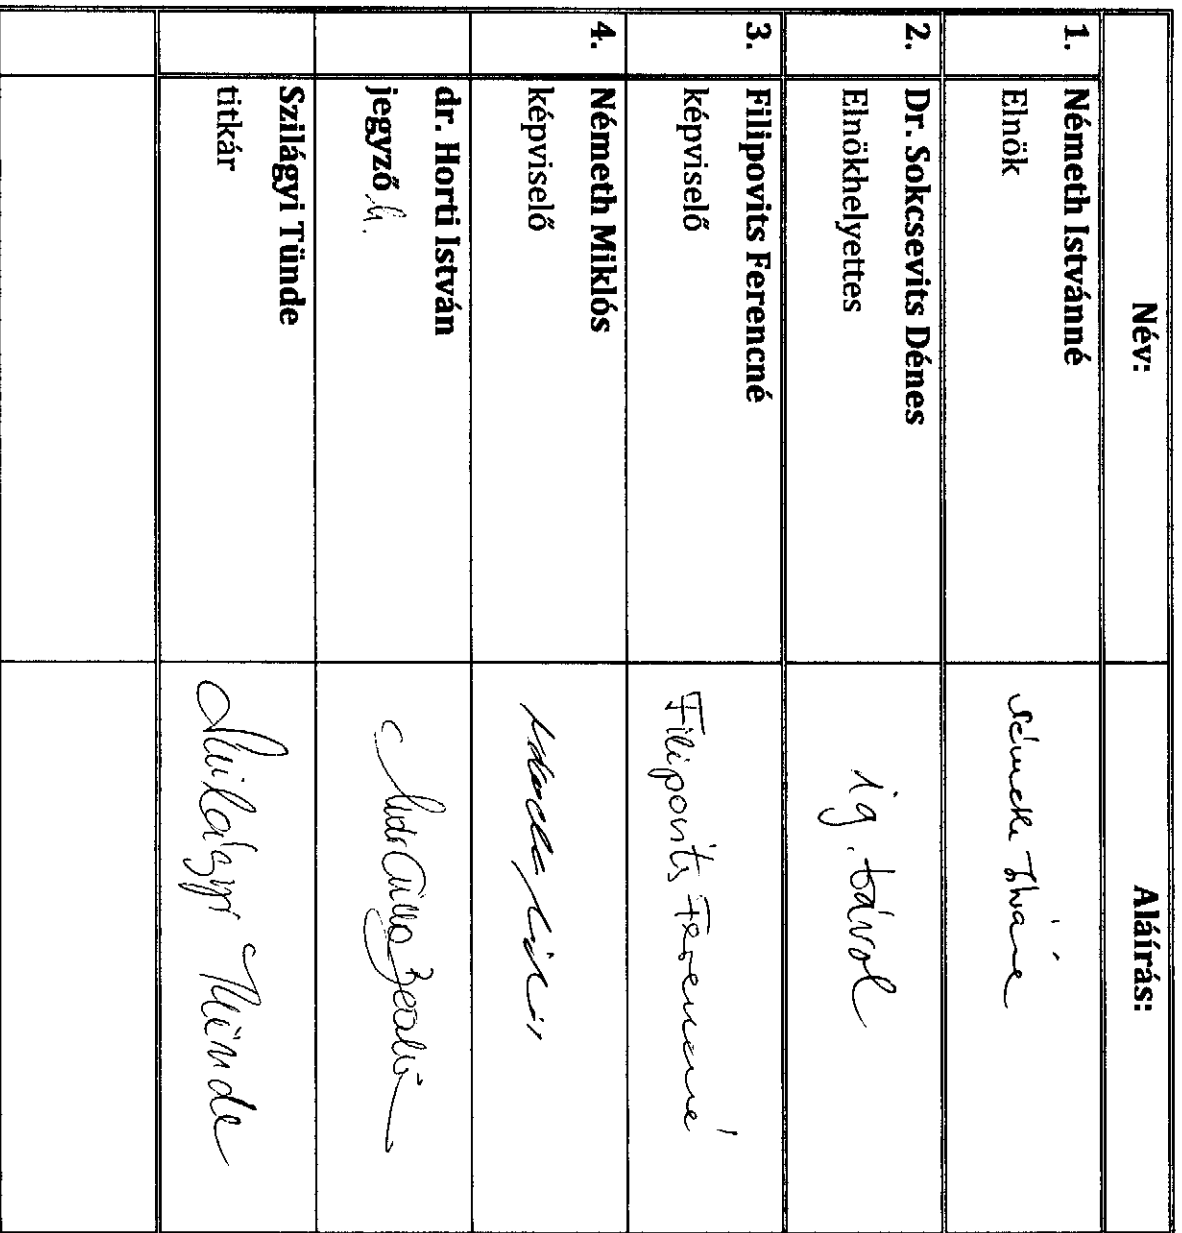 Név: Aláírás:
1. Németh Istvánné
Elnök
Németh Istváne
2. Dr. Sokcsevits Dénes
Elnökhelyettes
ig. távol
3. Filipovits Ferencné
képviselő
Filipovits Ferencné
4. Németh Miklós
képviselő
dr. Horti István
jegyző h.
Szilágyi Tünde
titkár
Szilágyi Tünde